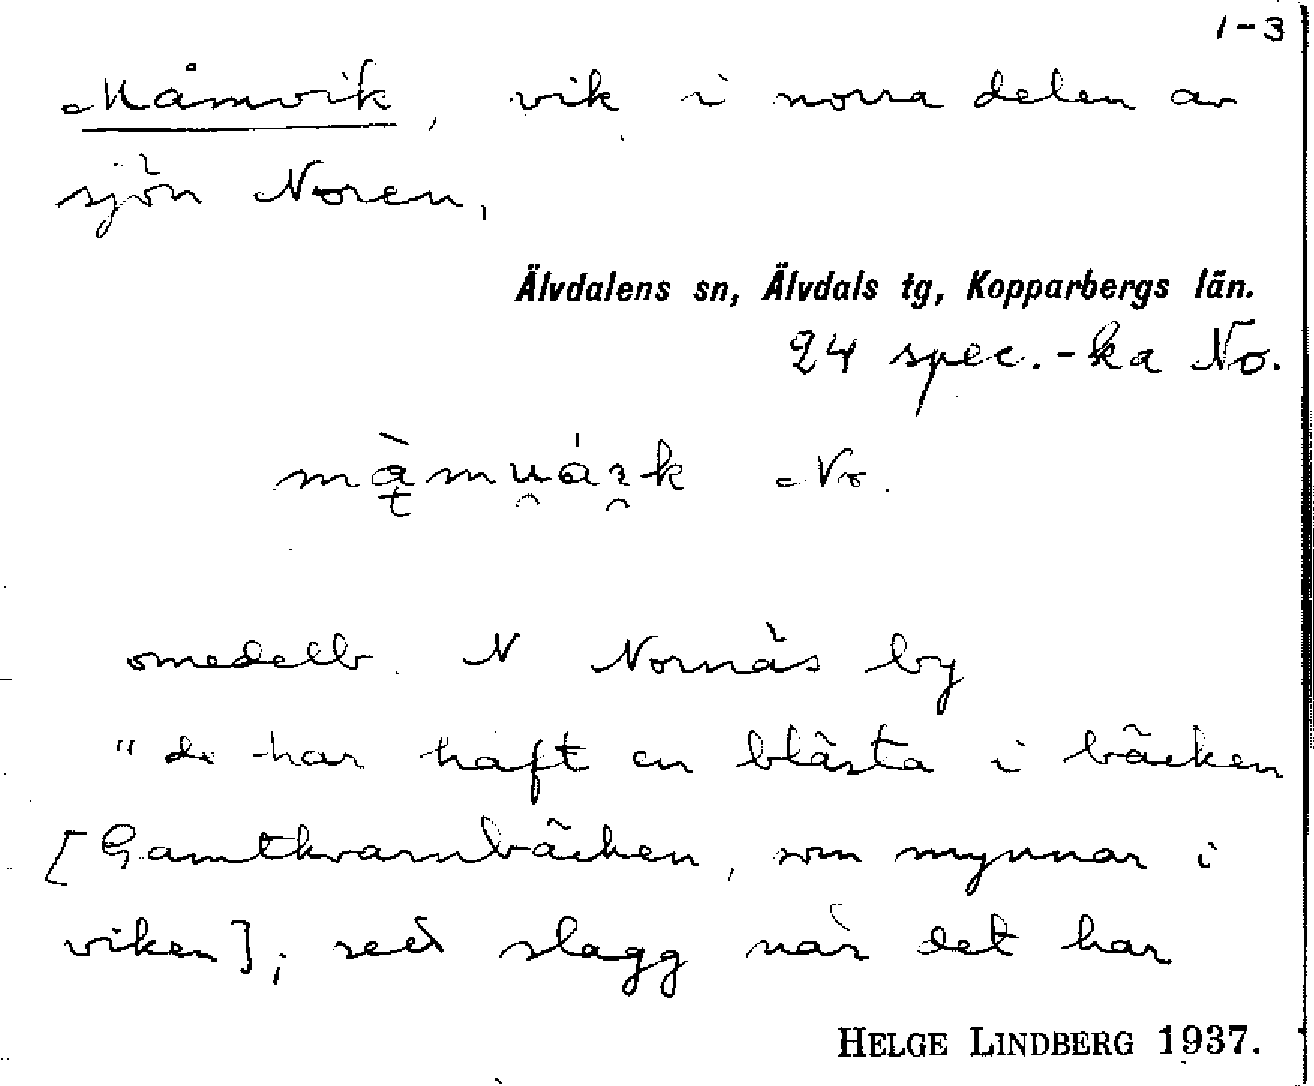 1-3
Måmvik, vik i norra delen av
sjön Noren,
Älvdalens sn, Älvdals tg, Kopparbergs län.
24 spec.-ka No.
No.
omedelb. N Nornäs by
"de har haft en blästa i bäcken
[Gamtkvarnbäcken, som mynnar i
viken]; sed slagg när det har
HELGE LINDBERG 1937.